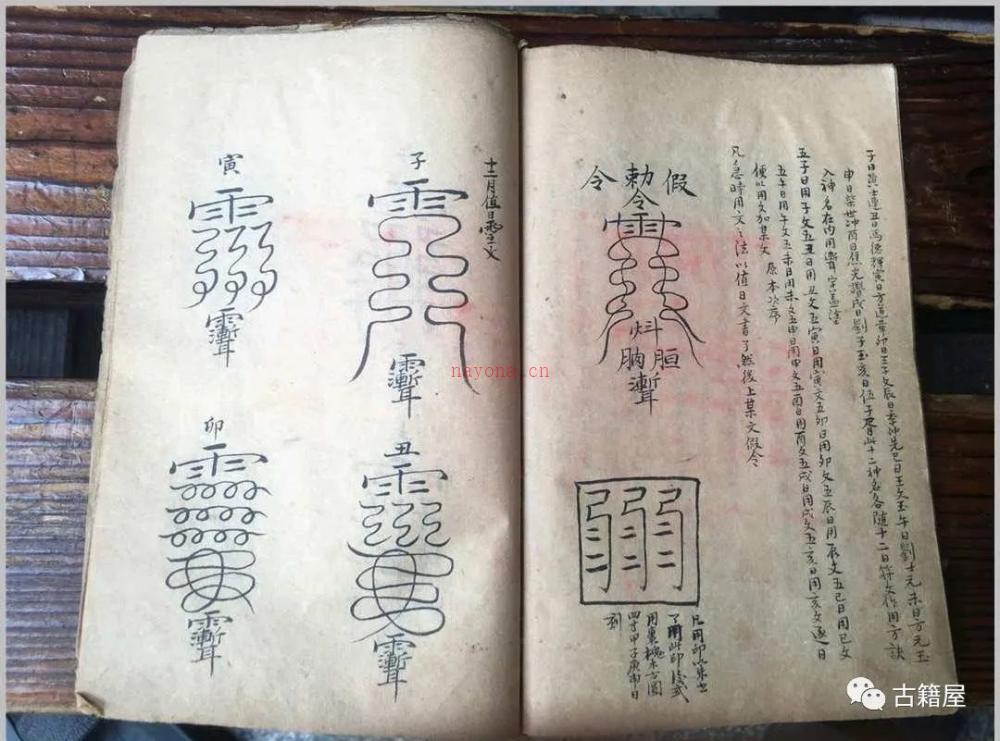 子日真士連丑日馬德輝寅日方道章卯日王子文辰日李仲先巳日王文玉午日劉士元未日方元玉
申日柴世冲酉日焦光讚戌日劉子玉亥日伍子胥此十二神名各隨十二日符文作用方訣
入神名在内用聻字盖塗
五子日用子文五丑日用丑文五寅日用寅文五卯日用卯文五辰日用辰文五巳日用巳文
五午日用午文五未日用未文五申日用申文五酉日用酉文五戌日用戌文五亥日用亥文逐日
便以用文加某文 原本次序
凡急時用文之法以值日文書了然後上某文假令
假
勅令
令
胆
凡用印以朱
了用此印後或
用棗槐木方圓
四寸甲子庚申日
刻
十二月值日文
子
丑
寅
卯
nayona.cn
古籍屋